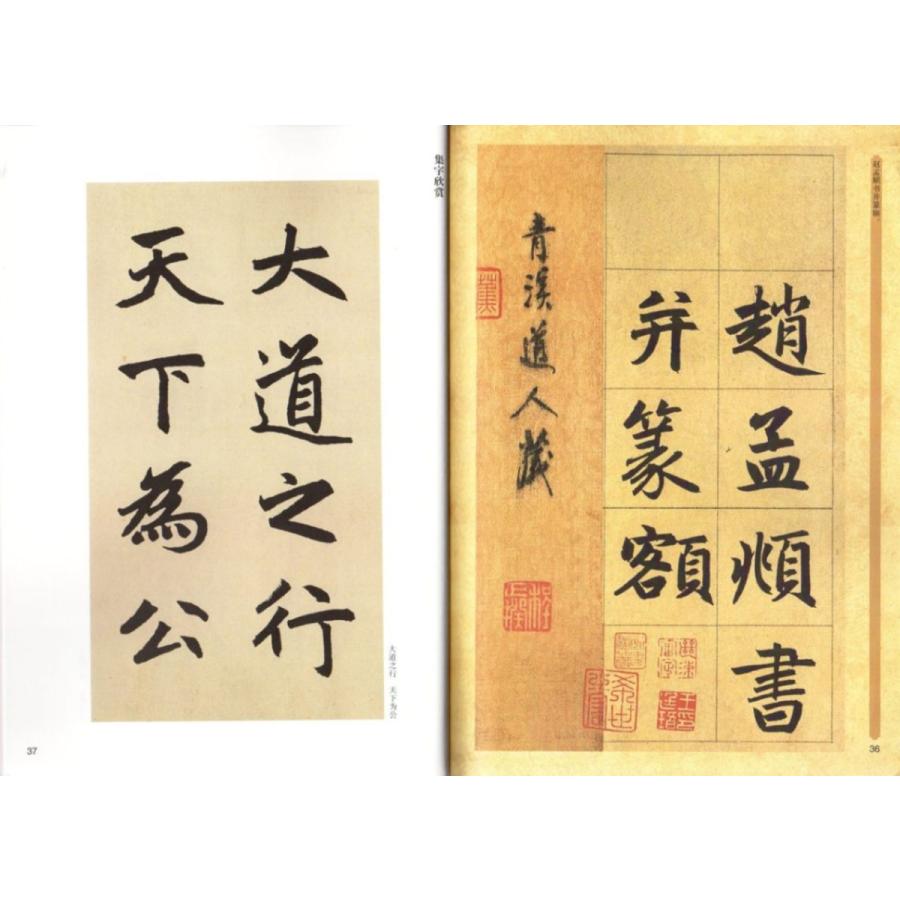 赵孟頫书并篆额
趙孟頫書
并篆額
青溪道人藏
36
集字欣赏
大道之行
天下為公
大道之行 天下为公
37